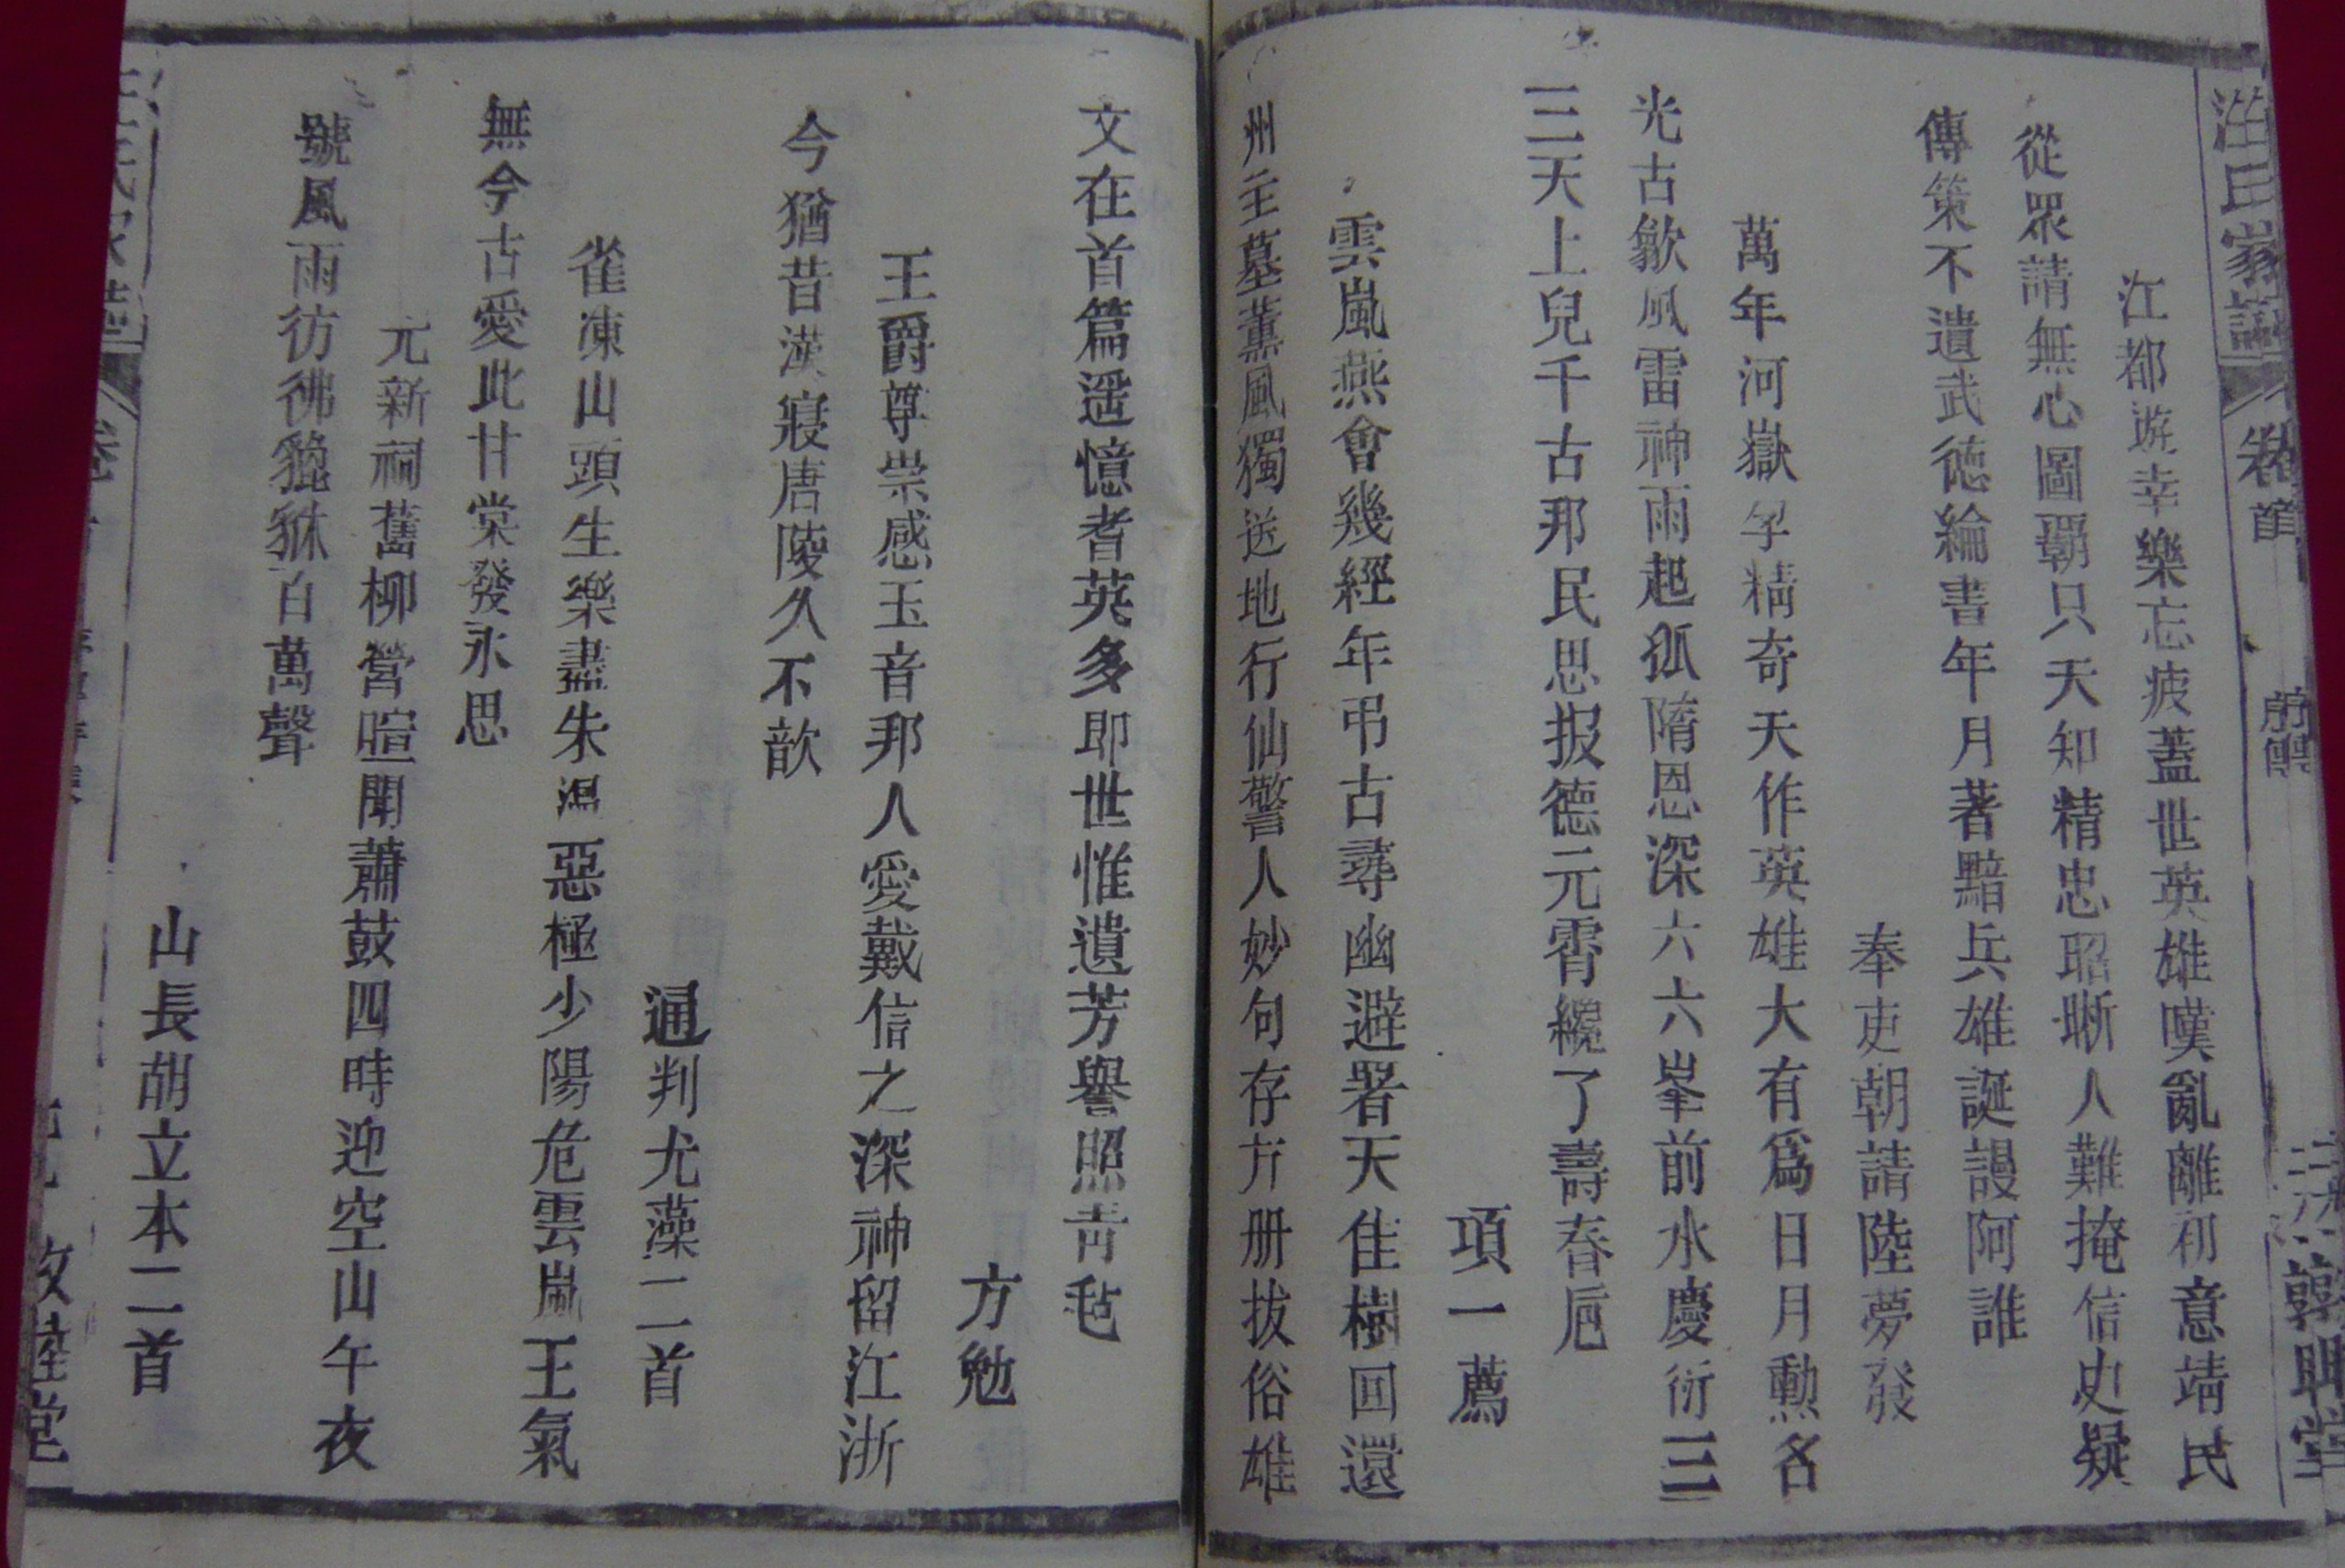 汪氏家譜
卷首
江都遊幸樂忘疲蓋世英雄嘆亂離初意靖民
從眾請無心圖霸只天知精忠昭晰人難掩信史疑
傳策不遺武德綸書年月著黯兵雄誕謾阿誰
奉吏朝請陸夢發
萬年河嶽孕精奇天作英雄大有為日月勲名
光古歙風雷神雨起狐隋恩深六六峯前水慶衍三
三天上兒千古那民思报德元霄纔了壽春巵
項一薦
雲嵐燕會幾經年弔古尋幽避署天佳樹回還
州主墓薰風獨送地行仙警人妙句存方册拔俗雄
文在首篇遥憶耆英多即世惟遺芳譽照靑毡
方勉
王爵尊崇感玉音邦人愛戴信之深神留江浙
今猶昔漢寢唐陵久不歆
通判尤藻二首
雀凍山頭生樂盡朱温惡極少陽危雲嵐王氣
無今古愛此甘棠發永思
元新祠舊柳營喧聞蕭鼓四時迎空山午夜
號風雨彷彿貔貅百萬聲
山長胡立本二首